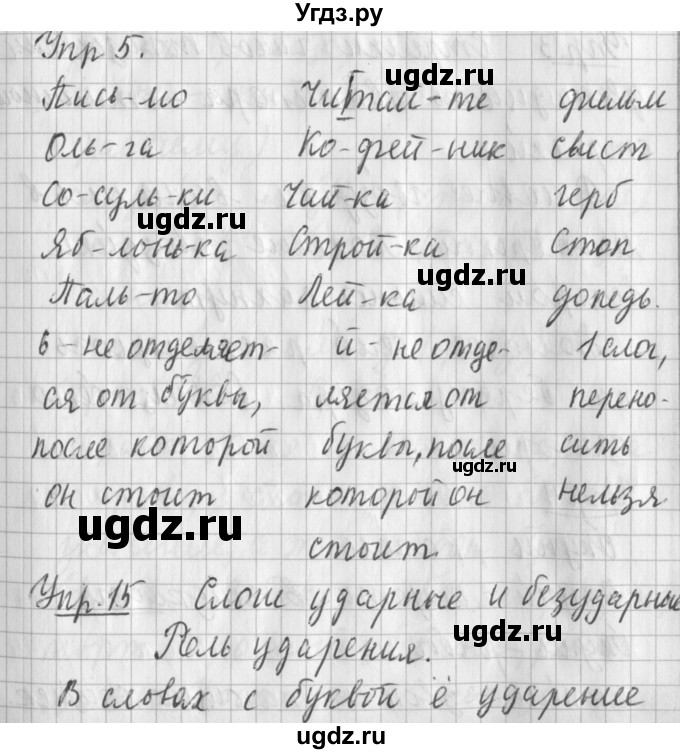 Угдз.ру
Упр 5.
Пись-мо Читай-те фильм
Оль-га Ко-фей-ник свист
Со-суль-ки Чай-ка герб
ugdz.ru
ugdz.ru
Яб-лонь-ка Строй-ка Стоп
Паль-то Лей-ка допедь.
ь - не отделяет- й - не отде- 1 слог,
ся от буквы, ляется от перено-
после которой буквы, после сить
ugdz.ru
он стоит которой он нельзя
ugdz.ru
стоит.
Упр. 15 Слоги ударные и безударные
ugdz.ru
Роль ударения.
В словах с буквой ё ударение
ugdz.ru